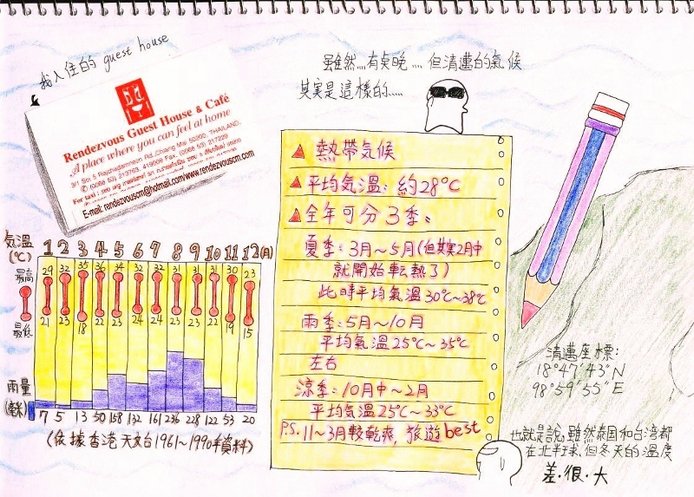 我入住的 guest house
Rendezvous Guest House & Café
A place where you can feel at home
E-mail: rendezvouscm@hotmail.com/www.rendezvouscm.com
雖然...有點晚....但清邁的氣候
其實是這樣的.....
▲熱帶气候
▲平均气溫:約28°C
▲全年可分3季。
夏季:3月~5月(但其實2月中
就開始転熱了)
此時平均气溫30°C~38°C
雨季:5月~10月
平均氣溫25°C~35°C
左右
涼季:10月中~2月
平均气溫25°C~33°C
PS.11~3月較乾爽,旅遊best
气溫(°C) 1 2 3 4 5 6 7 8 9 10 11 12(月)
最高 29 32 35 36 34 32 32 31 31 31 30 23
最低 21 23 18 22 23 24 24 23 23 23 19 15
雨量
7 5 13 50 158 132 161 236 228 122 53 20
(依據香港天文台1961~1990年資料)
清邁座標:
18°47'43"N
98°59'55"E
也就是說,雖然泰国和台湾都
在北半球,但冬天的溫度
差.很.大